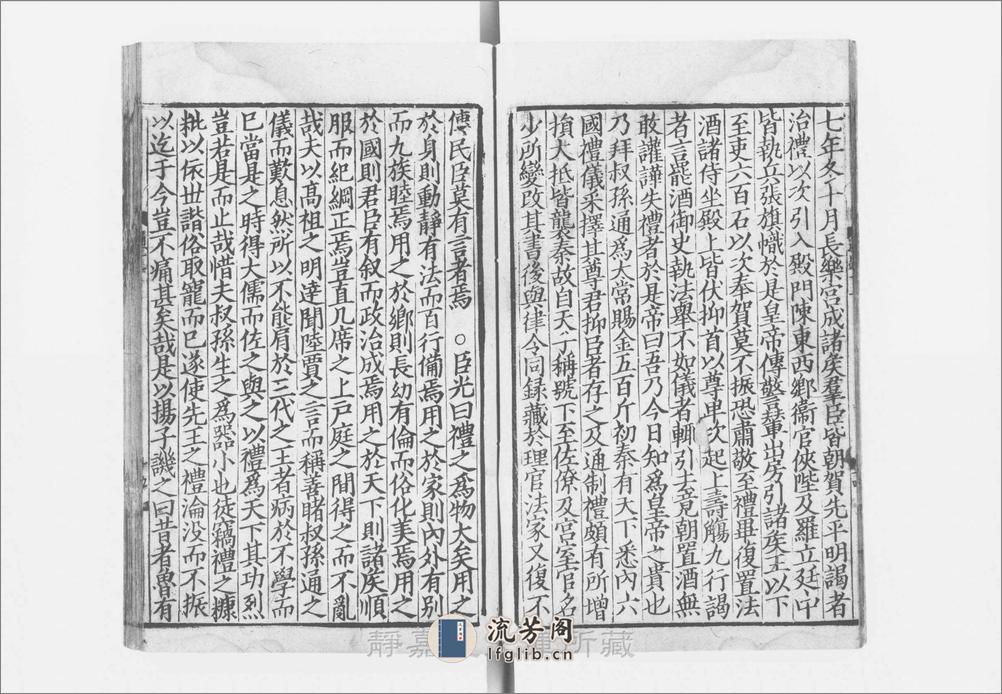 七年冬十月長樂宮成諸侯羣臣皆朝賀先平明謁者
治禮以次引入殿門陳東西鄉衞官俠陛及羅立廷中
皆執兵張旗幟於是皇帝傳警輦出房引諸侯王以下
至吏六百石以次奉賀莫不振恐肅敬至禮畢復置法
酒諸侍坐殿上皆伏抑首以尊卑次起上壽觴九行謁
者言罷酒御史執法舉不如儀者輒引去竟朝置酒無
敢讙譁失禮者於是帝曰吾乃今日知爲皇帝之貴也
乃拜叔孫通爲太常賜金五百斤初秦有天下悉內六
國禮儀采擇其尊君抑臣者存之及通制禮頗有所增
損大抵皆襲秦故自天子稱號下至佐僚及宮室官名
少所變改其書後與律令同録藏於理官法家又復不
傳民臣莫有言者焉 ○臣光曰禮之爲物大矣用之
於身則動靜有法而百行備焉用之於家則內外有別
而九族睦焉用之於鄉則長幼有倫而俗化美焉用之
於國則君臣有敘而政治成焉用之於天下則諸侯順
服而紀綱正焉豈直几席之上戶庭之間得之而不亂
哉夫以高祖之明達聞陸賈之言而稱善睹叔孫通之
儀而歎息然所以不能肩於三代之王者病於不學而
已當是之時得大儒而佐之與之以禮爲天下其功烈
豈若是而止哉惜夫叔孫生之爲器小也徒竊禮之糠
粃以依世諧俗取寵而已遂使先王之禮淪没而不振
以迄于今豈不痛甚矣哉是以揚子譏之曰昔者魯有
流芳阁
lfglib.cn
靜嘉 所藏